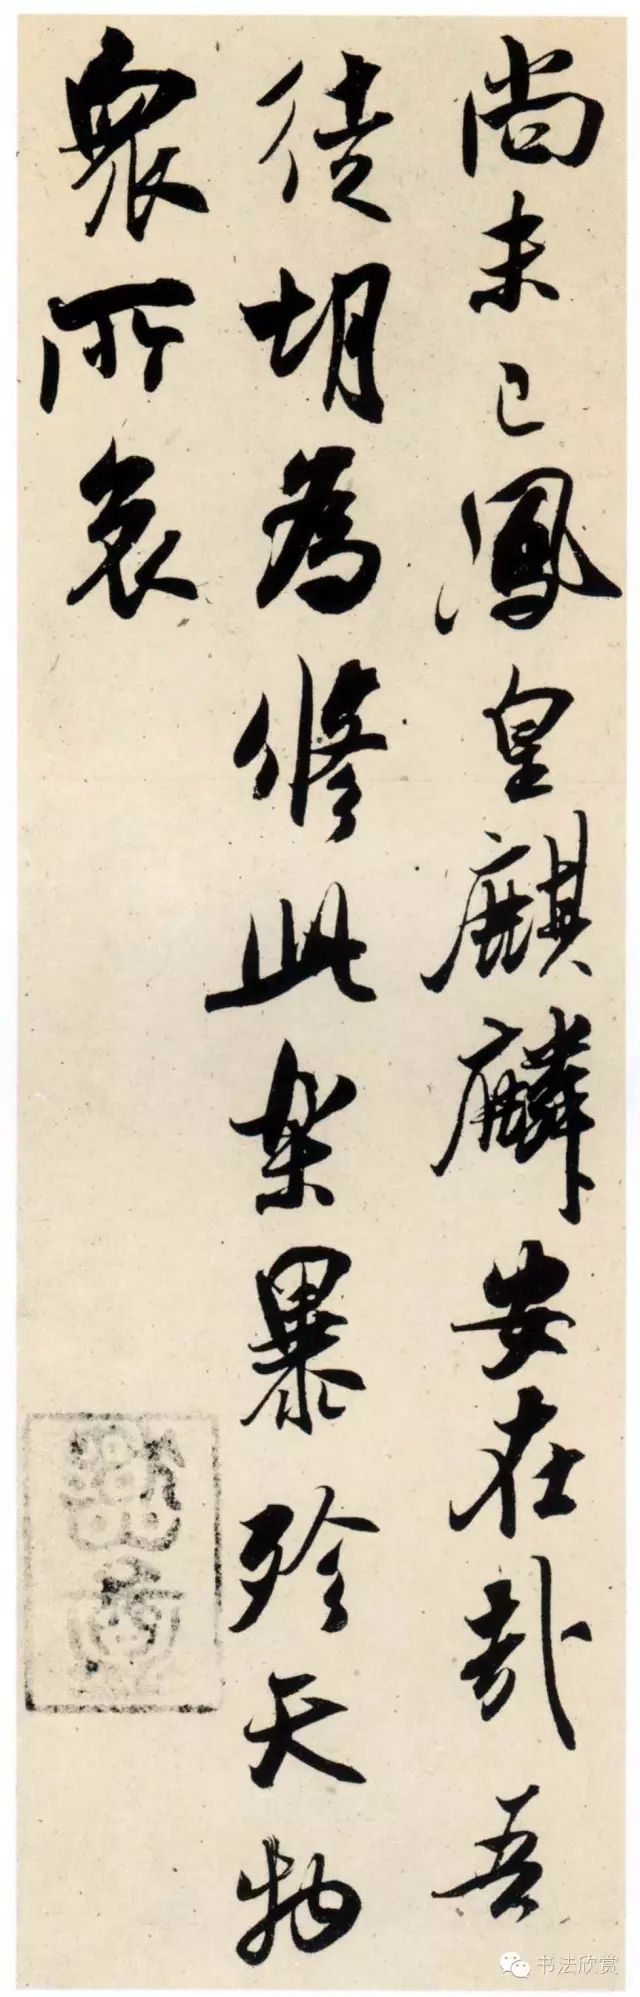 尚未已鳳皇麒麟安在哉吾
徒胡為脩此樂暴殄天物
衆所哀
书法欣赏